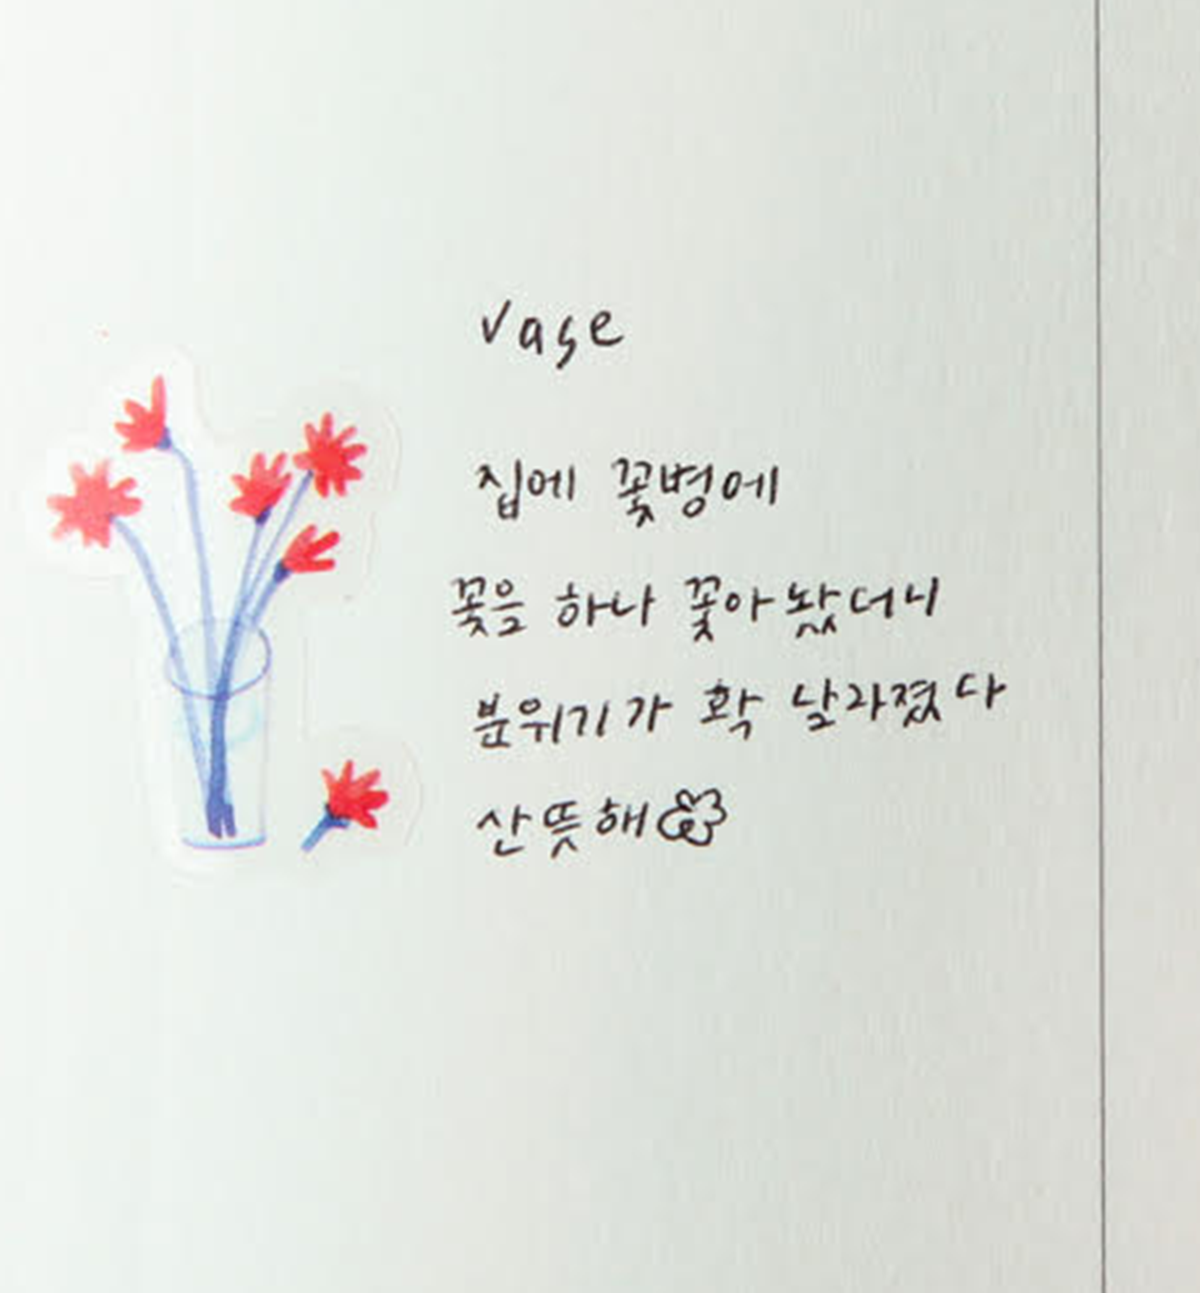 vase
집에 꽃병에
꽃을 하나 꽃아 놨더니
분위기가 확 날라졌다
산뜻해